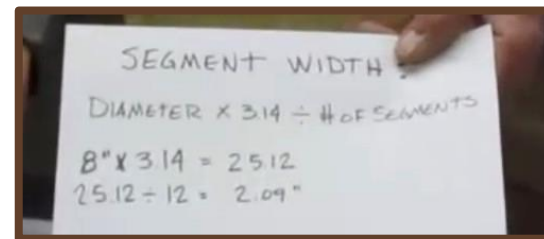 SEGMENT WIDTH:
DIAMETER X 3.14 ÷ # OF SEGMENTS
8" X 3.14 = 25.12
25.12 ÷ 12 = 2.09"